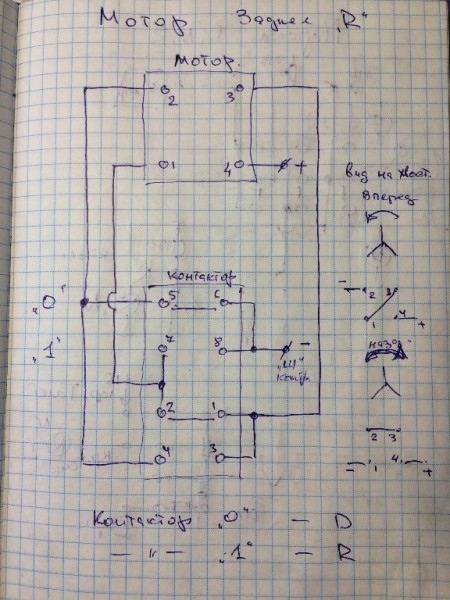 Мотор Заднее „R“
Мотор.
2 3
1 4 +
вид на хвост.
Вперед
Контактор
„0“ 5 6
– 2 3
1 4 +
„1“ 7 8 –
„Ш“
контр.
назад
2 1
4 3
2 3
– 1 4 +
Контактор „0“ – D
– „ – „1“ – R